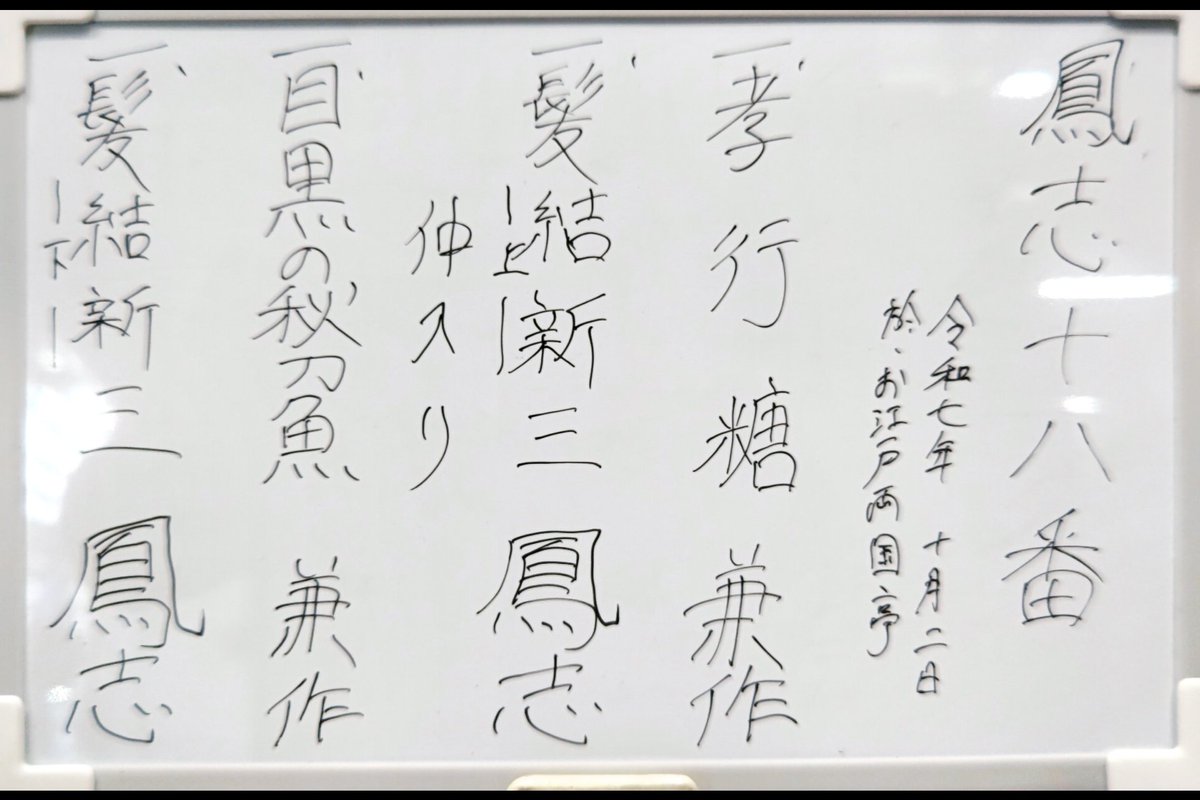 鳳志十八番
令和七年 十月二日
於、お江戸両国亭
一、孝行糖 兼作
一、髪結新三 鳳志
―上―
仲入り
一、目黒の秋刀魚 兼作
一、髪結新三 鳳志
―下―